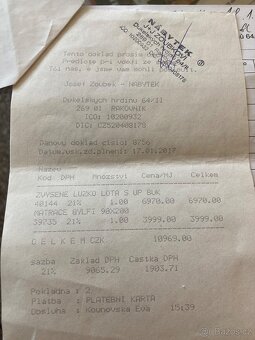 Tento doklad prosím
Předlote při
Josef Zoubek - NÁBYTEK
Dukelských hrdinů 64/II
269 01 RAKOVNÍK
IČO: 10200932
Daňový doklad číslo: 8756
Datum.usk.zd.plnění: 17.01.2017
Název
Kód DPH Množství Cena/MJ Celkem
ZVÝŠENÉ LŮŽKO LOTA S ÚP BUK
40144 21% 1.00 6970.00 6970.00
MATRACE BYLFI 90X200
39735 21% 1.00 3999.00 3999.00
C E L K E M CZK 10969.00
sazba Základ DPH Částka DPH
21% 9065.29 1903.71
Pokladna : 2
Platba : PLATEBNÍ KARTA
Obsluha : Kounovská Eva 15:39
NÁBYTEK